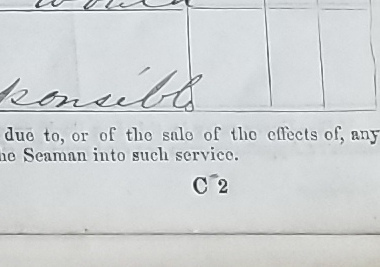 ponsible
due to, or of the sale of the effects of, any
he Seaman into such service.
C 2